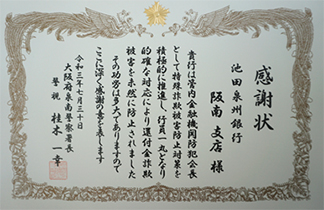 感謝状
池田泉州銀行
阪南支店様
貴行は管内金融機関防犯会長
として特殊詐欺被害防止対策を
積極的に推進し、行員一丸となり
的確な対応により還付金詐欺
被害を未然に防止されました
その功労は多大でありますので
ここに深く感謝の意を表します
令和三年七月三十日
大阪府泉南警察署長
警視 桂木一幸